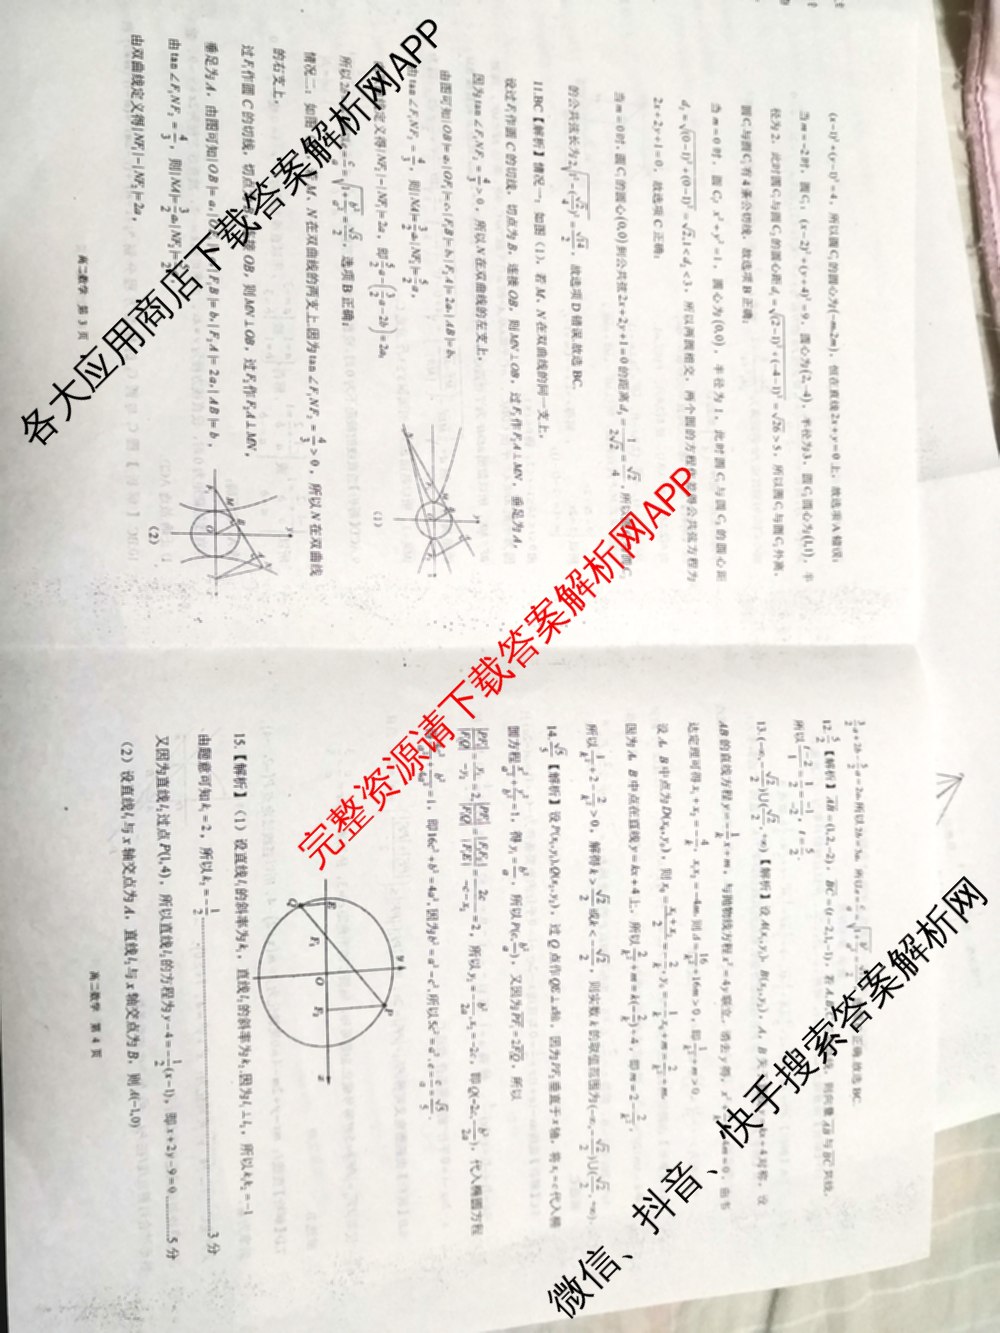 (x-1)²+(y-1)²=4，所以圆C₂的圆心为(-m,2m)，恒在直线2x+y=0上，故选项A错误；
当m=-2时，圆C₁：(x-2)²+(y+4)²=9，圆心为(2,-4)，半径为3，圆C₂圆心为(1,1)，半
径为2，此时圆C₁与圆C₂的圆心距d₁=√((2-1)²+(-4-1)²)=√26>5，所以圆C₁与圆C₂外离，
圆C₁与圆C₂有4条公切线，故选项B正确；
当m=0时，圆C₁：x²+y²=1，圆心为(0,0)，半径为1，此时圆C₁与圆C₂的圆心距
d₂=√((0-1)²+(0-1)²)=√2,1<d₂<3，所以两圆相交，两个圆的方程
公共弦方程为
2x+2y+1=0，故选项C正确；
当m=0时，圆C₁的圆心(0,0)到公共弦2x+2y+1=0的距离d₃=1/(2√2)=√2/4，所以
的公共弦长为2√(1²-(√2/4)²)=√14/2，故选项D错误.故选BC.
11.BC【解析】情况一，如图（1），若M、N在双曲线的同一支上，
设过F₁作圆C的切线，切点为B，连接OB，则MN⊥OB，过F₂作F₂A⊥MN，垂足为A，
因为tan∠F₁NF₂=4/3>0，所以N在双曲线的左支上，
由图可知|OB|=a,|OF₁|=c,|F₁B|=b,|F₂A|=2a,|AB|=b,
由tan∠F₁NF₂=4/3，则|NA|=3/2a,|NF₂|=5/2a,
定义得|NF₂|-|NF₁|=2a，即5/2a-(3/2a-2b)=2a,
所以2b
=c/a=√(1+b²/a²)=√5/2，选项B正确；
情况二，如图
M、N在双曲线的两支上,因为tan∠F₁NF₂=4/3>0，所以N在双曲线
的右支上，
过F₁作圆C的切线，切点
接OB，则MN⊥OB，过F₂作F₂A⊥MN，
垂足为A，由图可知|OB|=a,
|F₁B|=b,|F₂A|=2a,|AB|=b，
由tan∠F₁NF₂=4/3，则|NA|=3/2a,|NF₂|=5/2
由双曲线定义得|NF₁|-|NF₂|=2a，
(1)
(2)
高二数学 第3页
3/2a+2b-5/2a=2a,所以2b=3a，
正确.故选BC.
12. 5/2【解析】AB=(1,2,-2)，BC=(t-2,1,-1)，若A
则向量AB与BC共线，
所以(t-2)/1=1/2=-1/-2，t=5/2
13.(-∞,-√2/2)∪(√2/2,+∞)【解析】设A(x₁,y₁)，B(x₂,y₂)，A，B关
x+4对称，设
AB的直线方程y=-1/k x+m，与抛物线方程x²=4y联立，消去y得，x²+
=0，由韦
达定理可得x₁+x₂=-4/k，x₁x₂=-4m,则Δ=16/k²+16m>0，即1/k²+m>0，
设A、B中点为D(x₀,y₀)，则x₀=(x₁+x₂)/2=-2/k,y₀=-1/k x₀+m=2/k²+m,
因为A、B中点在直线y=kx+4上，所以2/k²+m=k(-2/k)+4，即m=2-2/k²,
所以1/k²+2-2/k²>0，解得k>√2/2或k<-√2/2，则实数k的取值范围为(-∞,-√2/2)∪(√2/2,+∞).
14. √5/5【解析】设P(x₁,y₁),Q(x₂,y₂)，过Q点作QE⊥x轴，因为PF₂垂直于x轴，将x₁=c代入椭
圆方程x²/a²+y²/b²=1，得y₁=b²/a，所以P(c,b²/a)，又因为PF₁=2F₁Q，所以
|PF₁|/|F₁Q|=y₁/-y₂=2,|PF₁|/|F₁Q|=|F₁F₂|/|F₁E|=2c/(-c-x₂)=2，所以y₂=-b²/2a,x₂=-2c，即Q(-2c,-b²/2a)，代入椭圆方程
=1，即16c²+b²=4a²,因为b²=a²-c²,所以5c²=a²,e=c/a=√5/5.
15.【解析】（1）设直线l₁的斜率为k₁，直线l₂的斜率为k₂,因为l₁⊥l₂，所以k₁k₂=-1
由题意可知k₁=2，所以k₂=-1/2 ……3分
又因为直线l₂过点P(1,4)，所以直线l₂的方程为y-4=-1/2(x-1)，即x+2y-9=0……5分
（2）设直线l₁与x轴交点为A，直线l₂与x轴交点为B，则A(-1,0)
高二数学 第4页
各大应用商店下载答案解析网APP
完整资源请下载答案解析网APP
微信、抖音、快手搜索答案解析网